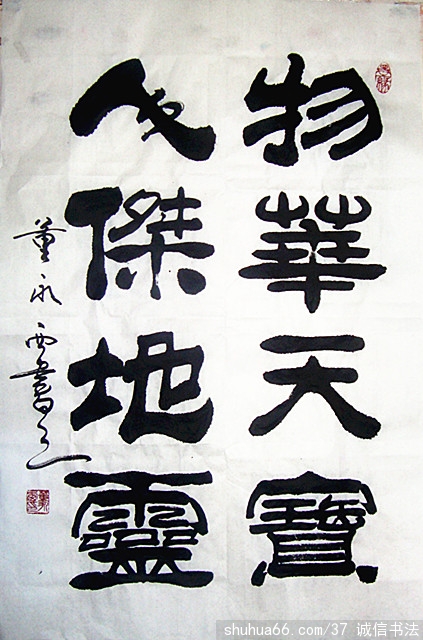 物華天寶
人傑地靈
董永西書之
shuhua66.com/37 诚信书法